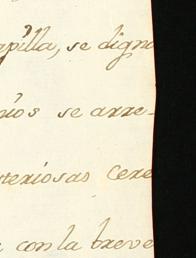 apilla, se digno
rios se arre-
steriosas Cere
con la breve